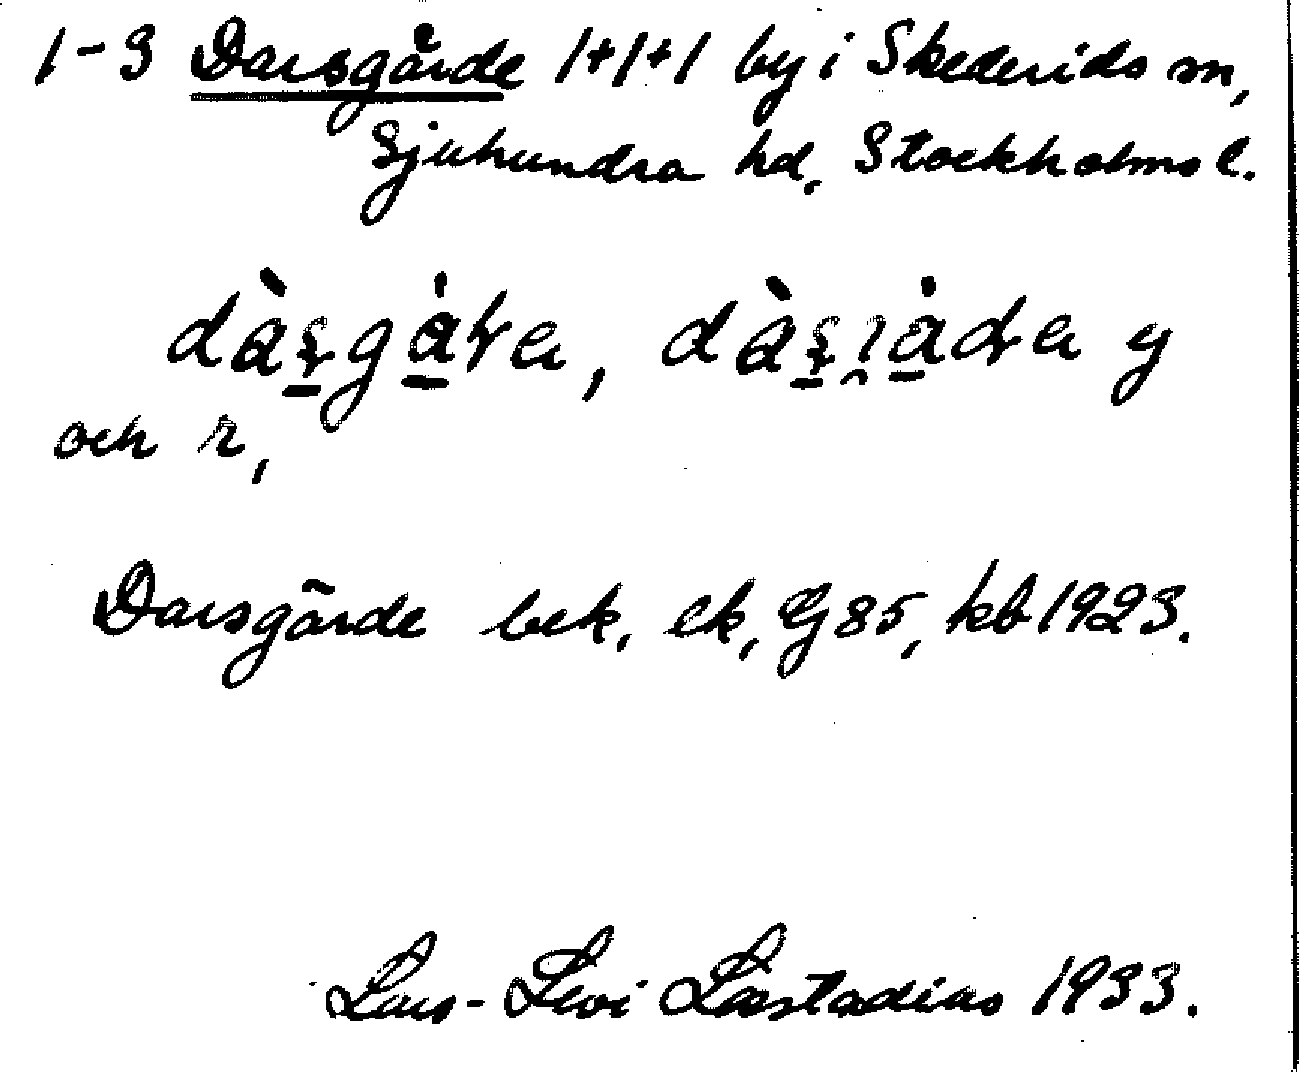 1-3 Darsgärde 1+1+1 by i Skederids sn,
Sjuhundra hd, Stockholms l.
och r,
Darsgärde bek, ek, G85, kb 1923.
Lars-Levi Læstadius 1933.